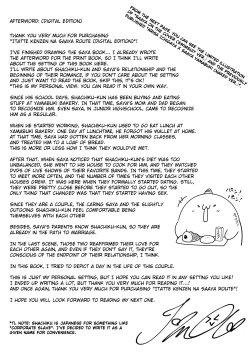 AFTERWORD: (DIGITAL EDITION)
THANK YOU VERY MUCH FOR PURCHASING
"ITATTE KENZEN NA SAAYA ROUTE (DIGITAL EDITION)"!
I'VE FINISHED DRAWING THE SAAYA BOOK... I ALREADY WROTE
THE AFTERWORD FOR THE PRINT BOOK, SO I THINK I'LL WRITE
ABOUT THE SETTING OF THIS BOOK HERE.
I'LL WRITE ABOUT SHACHIKU-KUN AND HIS BACKGROUND AND THE
BEGINNING OF THEIR ROMANCE. IF YOU DON'T CARE ABOUT THE SETTING
AND JUST WANT TO READ THE BOOK, SKIP THIS, IT'S OK!
*THIS IS MY PERSONAL VIEW. YOU CAN READ IT IN YOUR OWN WAY.
SINCE HIS SCHOOL DAYS, SHACHIKU-KUN HAS BEEN BUYING AND EATING
STUFF AT YAMABUKI BAKERY. IN THAT TIME, SAAYA'S MOM AND DAD BEGAN
TO RECOGNIZE HIM. EVEN SAAYA, IN JUNIOR HIGHSCHOOL, CAME TO RECOGNIZE
HIM AS A REGULAR.
WHEN HE STARTED WORKING, SHACHIKU-KUN USED TO GO EAT LUNCH AT
YAMABUKI BAKERY. ONE DAY AT LUNCHTIME, HE FORGOT HIS WALLET AT HOME.
AT THAT TIME, SAAYA HAD GOTTEN BACK FROM HER MORNING CLASSES,
AND TREATED HIM TO A LOAF OF BREAD.
THIS MORE OR LESS HOW I THINK THEY WOULD'VE MET.
AFTER THAT, WHEN SAAYA NOTICED THAT SHACHIKU-KUN'S DIET WAS TOO
UNBALANCED, SHE WENT TO HIS HOUSE TO COOK FOR HIM, AND THEY WATCHED
DVDS OF LIVE SHOWS OF THEIR FAVORITE BANDS. IN THIS TIME, THEY STARTED
TO MEET MORE OFTEN, AND THE NUMBER OF TIMES THEY VISITED EACH OTHER
HOUSES GREW. IT WAS HERE WHEN THEY FORMALLY STARTED DATING. STILL,
THEY WERE PRETTY CLOSE BEFORE THEY STARTED TO GO OUT, SO THE
ONLY THING THAT CHANGED WAS THAT THEY STARTED HAVING SEX.
SINCE THEY ARE A COUPLE, THE CARING SAAYA AND THE SLIGHTLY
OUTGOING SHACHIKU-KUN FEEL COMFORTABLE BEING
THEMSELVES WITH EACH OTHER
BESIDES, SAAYA'S PARENTS KNOW SHACHIKU-KUN, SO THEY ARE
ALREADY IN THE PATH TO MARRIAGE.
IN THE LAST SCENE, THOSE TWO REAFFIRMED THEIR LOVE FOR
EACH OTHER AGAIN, AND EVEN IF THEY DON'T SAY IT, THEY'RE
CONSCIOUS OF THE ENDPOINT OF THEIR RELATIONSHIP, I THINK.
IN THIS BOOK, I TRIED TO DEPICT A DAY IN THE LIFE OF THIS COUPLE.
THIS IS JUST MY PERSONAL SETTING, BUT I HOPE YOU CAN READ IT IN ANY SETTING YOU LIKE!
I ENDED UP WRITING A LOT, BUT THANK YOU VERY MUCH FOR READING IT....!
AND ONCE AGAIN, THANK YOU VERY MUCH FOR PURCHASING "ITATTE KENZEN NA SAAYA ROUTE"!
I HOPE YOU WILL LOOK FORWARD TO READING MY NEXT ONE.
*TL NOTE: SHACHIKU IS JAPANESE FOR SOMETHING LIKE
"CORPORATE SLAVE". I'VE DECIDED TO WRITE IT AS A
GIVEN NAME FOR CONVENIENCE.